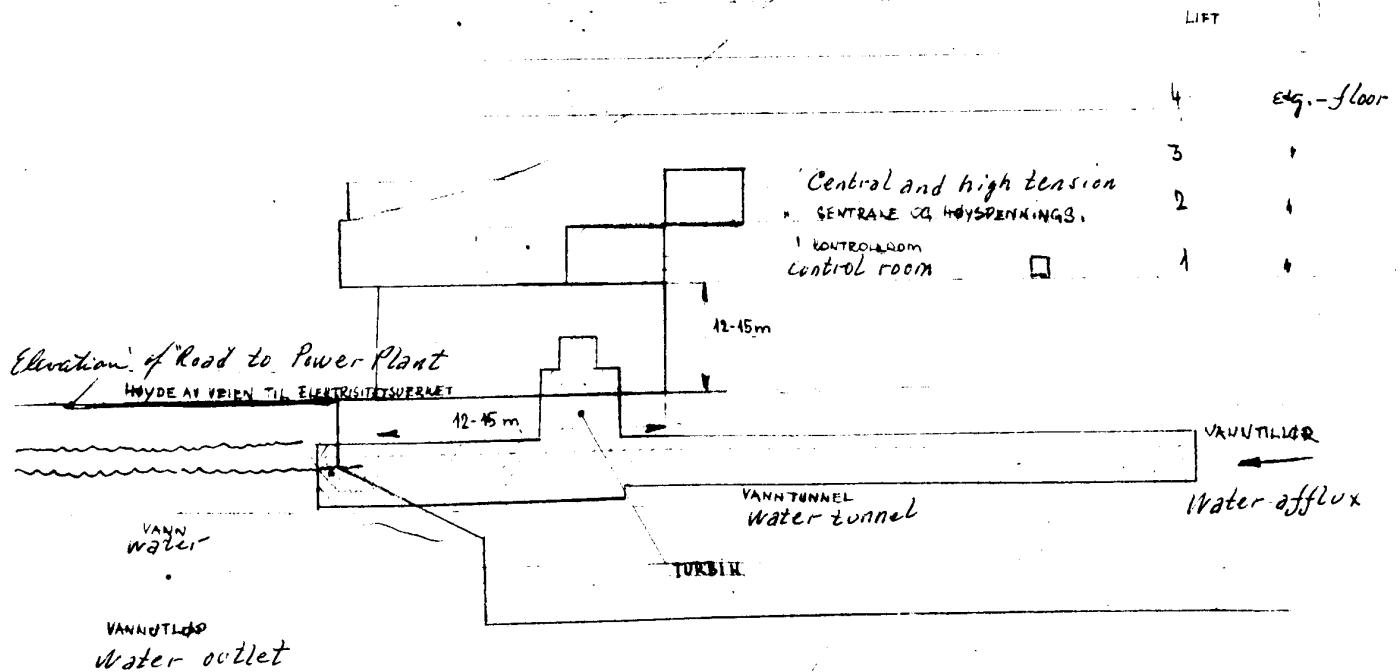 LIFT
4 etg.-floor
3 "
Central and high tension
" SENTRALE OG HØYSPENNINGS.
2 "
KONTROLLROOM
control room
1 "
12-15m
Elevation of Road to Power Plant
HØYDE AV VEIEN TIL ELEKTRISITETSVERKET
12-15m
VANNTILLØP
Water afflux
VANNTUNNEL
Water tunnel
VANN
Water
TURBIN
VANNUTLØP
Water outlet